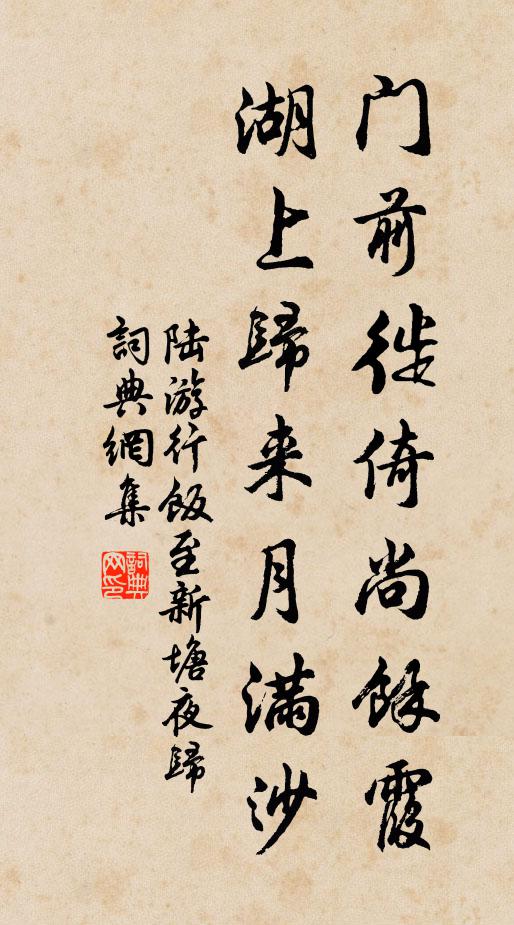 门前徙倚尚馀霞
湖上歸来月满沙
陆游行飯至新塘夜歸
詞典網集
詞典网印